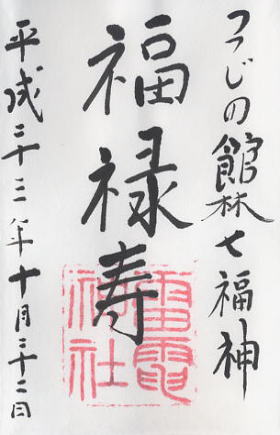 つつじの館林七福神
福禄寿
雷電
神社
平成二十三年十月二十二日